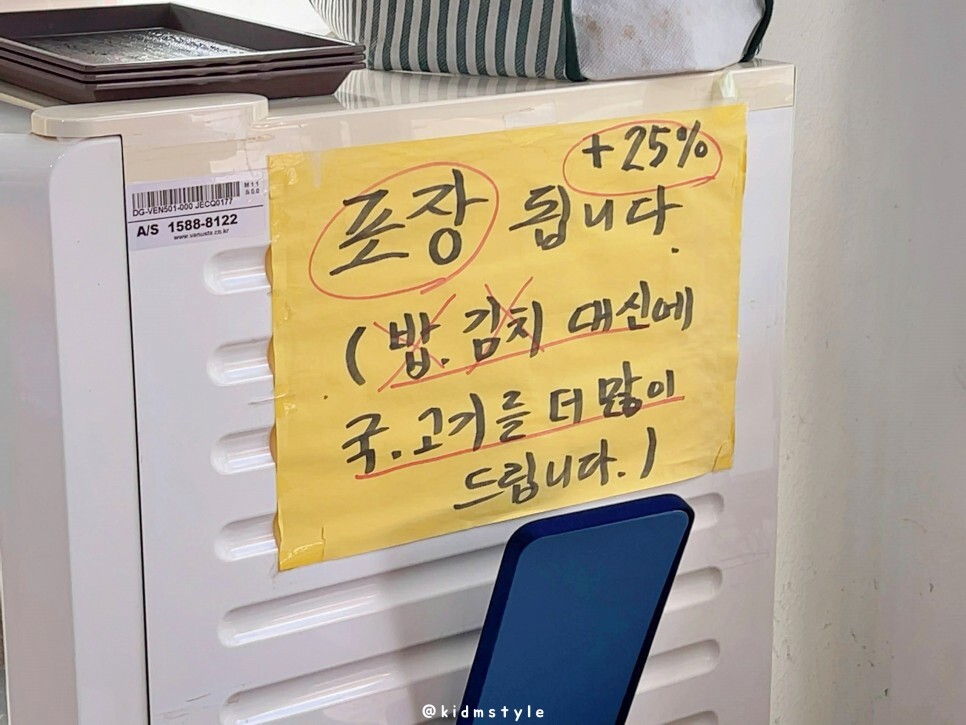 +25%
포장 됩니다.
(밥.김치 대신에
국.고기를 더 많이
드립니다.)
DG-VEN501-000 JECQ0177
A/S 1588-8122
@kidmstyle